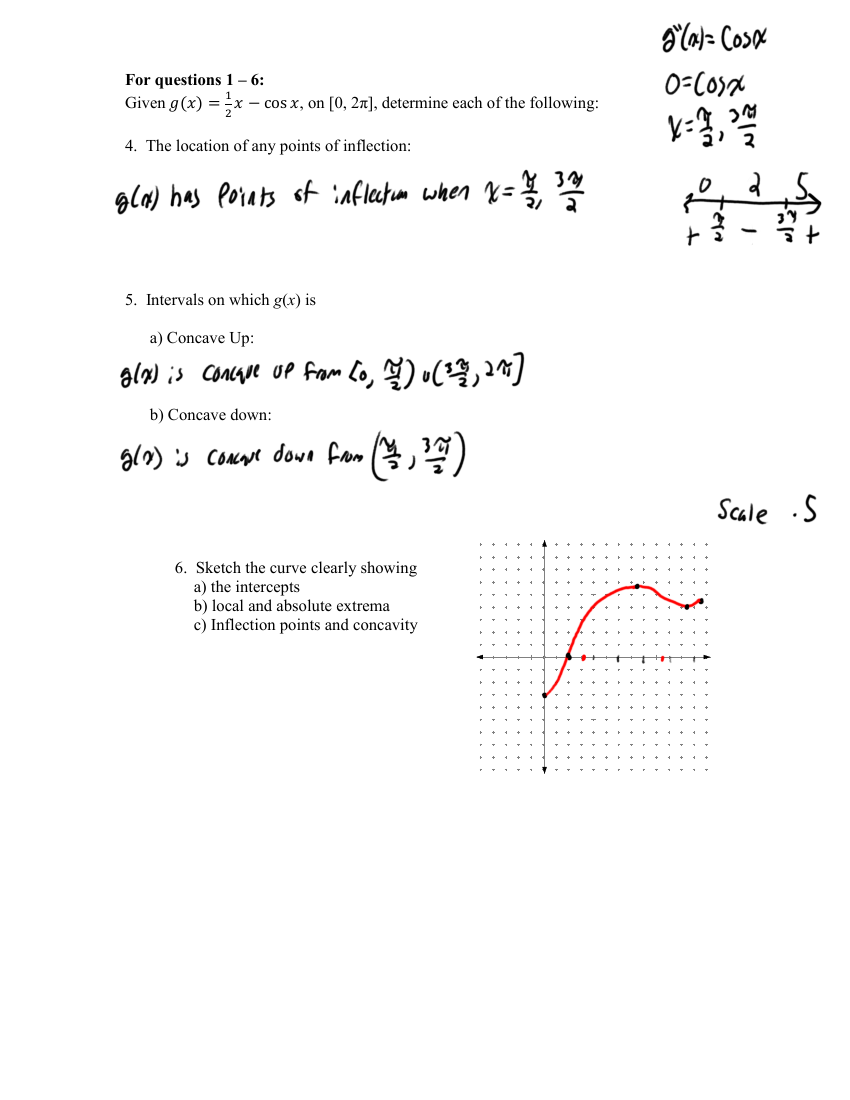 g''(x)= Cosx
0=Cosx
x=π/2, 3π/2
0 2 5
+ π/2 - 3π/2 +
For questions 1 – 6:
Given g(x) = 1/2 x − cos x, on [0, 2π], determine each of the following:
4. The location of any points of inflection:
g(x) has Points of inflection when x= π/2, 3π/2
5. Intervals on which g(x) is
a) Concave Up:
g(x) is concave up from [0, π/2) ∪ (3π/2, 2π]
b) Concave down:
g(x) is concave down from (π/2, 3π/2)
Scale .5
6. Sketch the curve clearly showing
a) the intercepts
b) local and absolute extrema
c) Inflection points and concavity